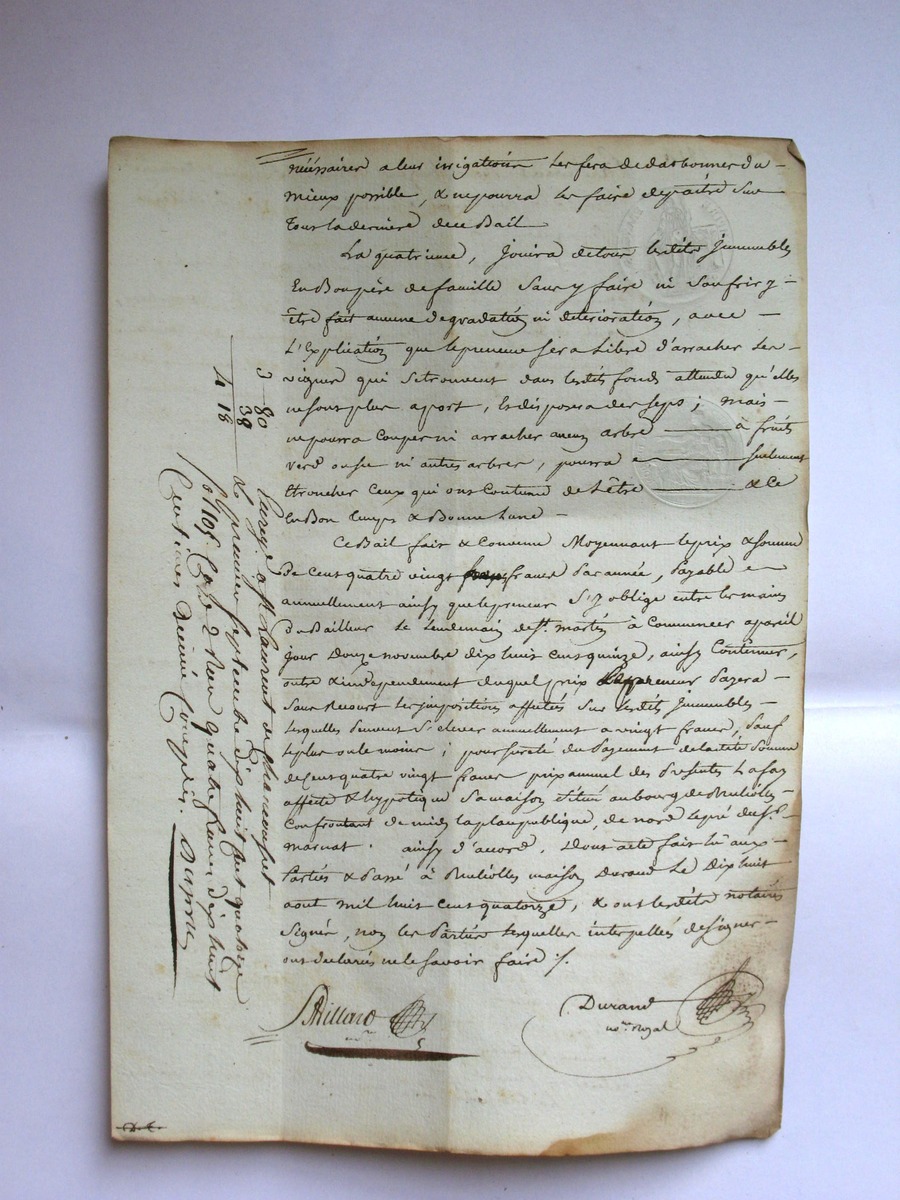 nécéssaires a leur irrigations les fera de darbonner du
mieux possible, & ne pourra les faire depaitre sur
tout la derniere de ce Bail
La quatrieme, Jouira de tous lesdits Jmmeubles
En Bon père de famille sans y faire ni soufrir y
être fait aucune degradation ni deterioration, avec
L'Explication que le preneur sera Libre d'arracher les
vignes qui se trouvent dans lesdits fonds attendu qu'elles
ne sont plus aport, & disposera des seps; mais
ne pourra Couper ni arracher aucun arbre à fruits
verd ou sec ni autres arbres, pourra seulement
Etroncher Ceux qui ont Coutume de L'être & Ce
En Bon temps & Bonne Lune
Ce Bail fait & Convenu Moyennant le prix & somme
De Cent quatre vingt francs Par année, Payable
annuellement ainsy que le preneur s'y oblige entre les mains
Du Bailleur le Lendemain de St. martin à Commencer a pareil
jour Douze novembre dix huit cent quinze, ainsy Continuer,
outre & independement duquel prix Le preneur Payera
Sans Recours les jmpositions affectées sur lesdits Jmmeubles
lesquelles Peuvent S'elever annuellement a vingt francs, Sauf
le plus ou le moins; pour sureté du Payement de ladite Somme
de Cent quatre vingt francs prix annuel des Presentes La
affecté & hypotéqué Sa maison située au bourg de
Confrontant de midy la place publique, de nord le pré du Sr.
marnat. ainsy d'accord. Dont acte fait Lu aux
Parties & Passé à maison Durand Le Dix huit
aout mil huit cent quatorze, & ont lesdits notaires
Signé, non les Parties lesquelles interpellés de signer
ont declarés ne le savoir faire ./.
Billard
nre
Durand
nore. Royal
3 80
38
4 18
Enregé a St. Laurent de Chamousset
Le premier septembre dix huit cent quatorze
fo. 110 Case 2 Reçu quatre francs dix huit
Centimes Decime Compris.